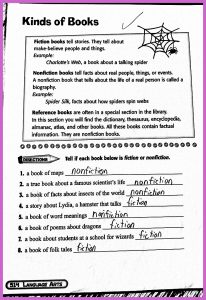 Kinds of Books
Fiction books tell stories. They tell about
make-believe people and things.
Example:
Charlotte's Web, a book about a talking spider
Nonfiction books tell facts about real people, things, or events.
A nonfiction book that tells about the life of a real person is called a
biography.
Example:
Spider Silk, facts about how spiders spin webs
Reference books are often in a special section in the library.
In this section you will find the dictionary, thesaurus, encyclopedia,
almanac, atlas, and other books. All these books contain factual
information. They are nonfiction books.
DIRECTIONS Tell if each book below is fiction or nonfiction.
1. a book of maps nonfiction
2. a true book about a famous scientist's life nonfiction
3. a book of facts about insects of the world nonfiction
4. a story about Lydia, a hamster that talks fiction
5. a book of word meanings nonfiction
6. a book of poems about dragons fiction
7. a book about students at a school for wizards fiction
8. a book of folk tales fiction
514 LANGUAGE ARTS